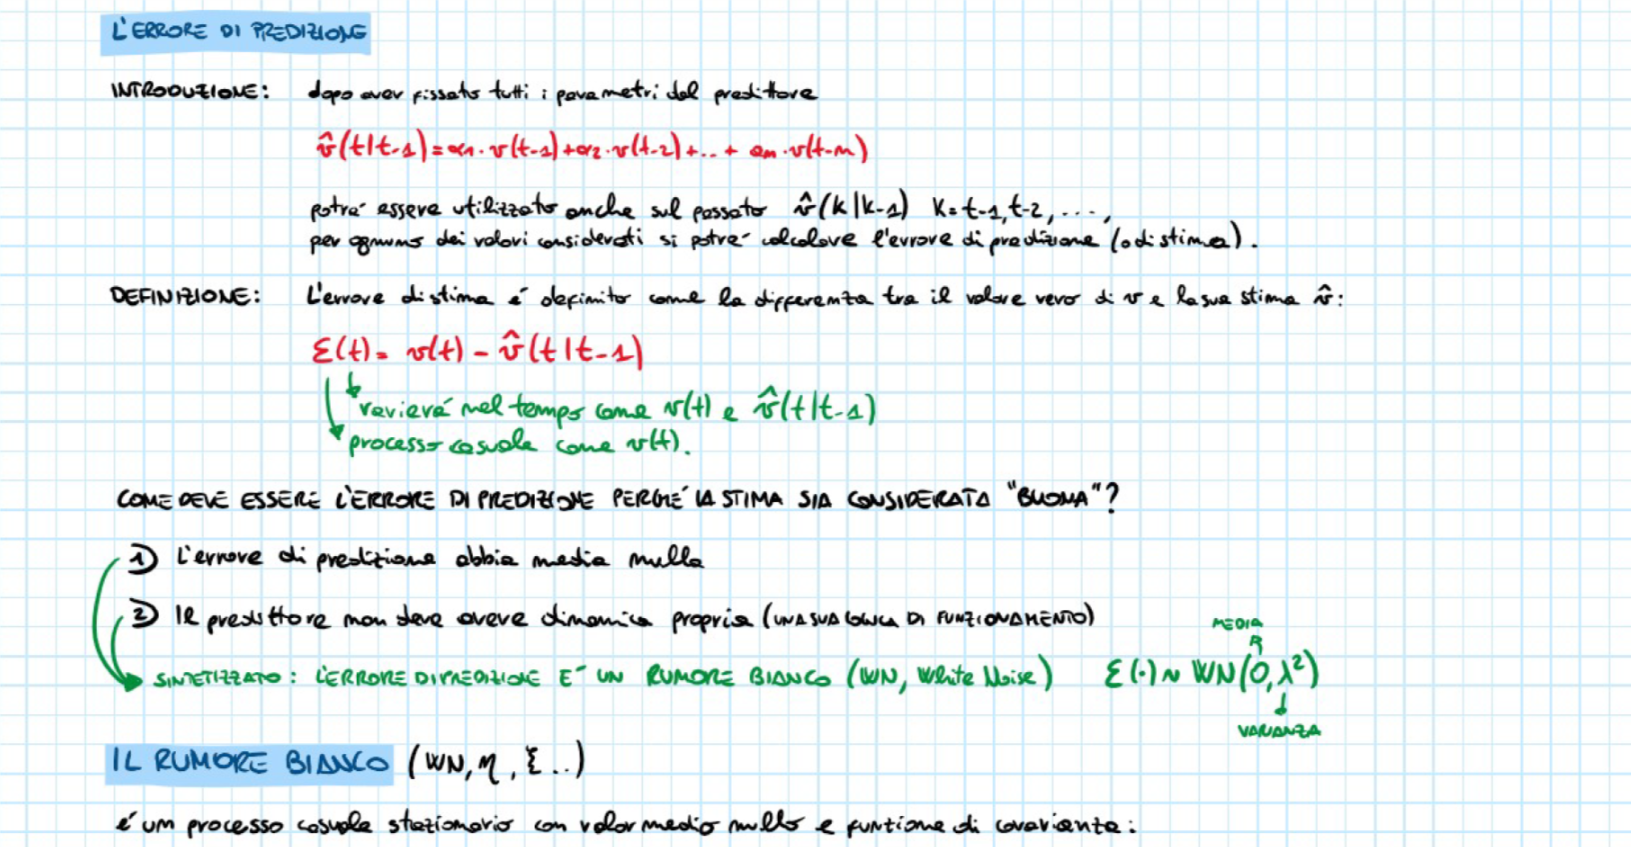 L'ERRORE DI PREDIZIONE
INTRODUZIONE: dopo aver fissato tutti i parametri del predittore
v̂(t|t-1) = α1·v(t-1)+α2·v(t-2)+..+ αn·v(t-n)
potra' essere utilizzato anche sul passato v̂(k|k-1) K=t-1,t-2,...,
per ognuno dei valori considerati si potra' calcolare l'errore di predizione (o di stima).
DEFINIZIONE: L'errore di stima é definito come la differenza tra il valore vero di v e la sua stima v̂:
ε(t)= v(t) - v̂(t|t-1)
varierá nel tempo come v(t) e v̂(t|t-1)
processo casuale come v(t).
COME DEVE ESSERE L'ERRORE DI PREDIZIONE PERCHE' LA STIMA SIA CONSIDERATA "BUONA"?
1) L'errore di predizione abbia media nulla
2) Il predittore non deve avere dinamica propria (UNA SUA LOGICA DI FUNZIONAMENTO)
MEDIA
SINTETIZZATO: L'ERRORE DI PREDIZIONE E' UN RUMORE BIANCO (WN, White Noise) ε(·) ~ WN(0,λ²)
VARIANZA
IL RUMORE BIANCO (WN, η, ξ ..)
é un processo casuale stazionario con valor medio nullo e funzione di covarianza: